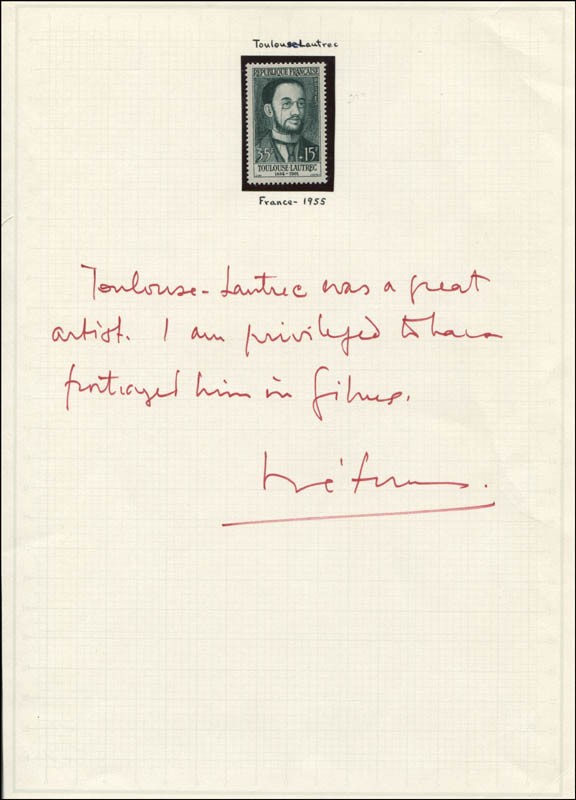 Toulouse Lautrec
REPUBLIQUE FRANÇAISE
35F +15F
TOULOUSE-LAUTREC
1864-1901
France - 1955
Toulouse-Lautrec was a great
artist. I am privileged to have
portrayed him in films.
José Ferrer.